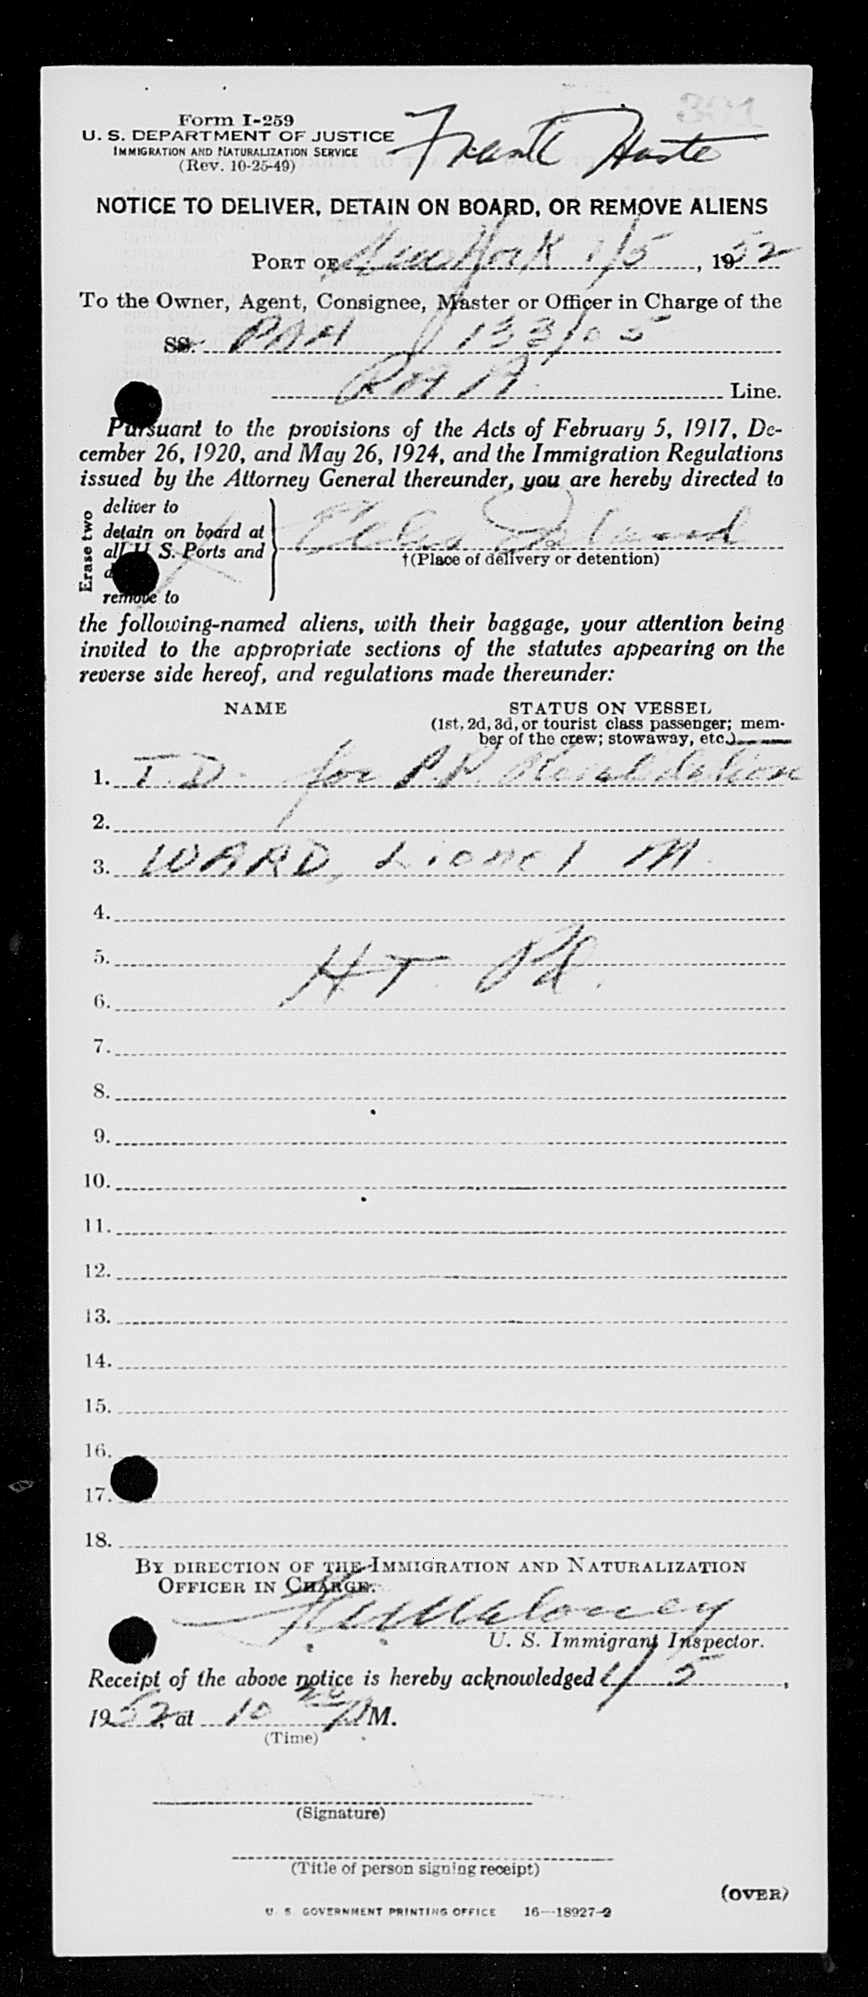 Form I-259
U. S. DEPARTMENT OF JUSTICE
IMMIGRATION AND NATURALIZATION SERVICE
(Rev. 10-25-49)
Frank
NOTICE TO DELIVER, DETAIN ON BOARD, OR REMOVE ALIENS
PORT OF New York 1/5, 1952
To the Owner, Agent, Consignee, Master or Officer in Charge of the
SS. PAA 133/05
PAA Line.
Pursuant to the provisions of the Acts of February 5, 1917, De-
cember 26, 1920, and May 26, 1924, and the Immigration Regulations
issued by the Attorney General thereunder, you are hereby directed to
Erase two
deliver to
detain on board at
all U. S. Ports and
remove to
Ellis Island
†(Place of delivery or detention)
the following-named aliens, with their baggage, your attention being
invited to the appropriate sections of the statutes appearing on the
reverse side hereof, and regulations made thereunder:
NAME STATUS ON VESSEL
(1st, 2d, 3d, or tourist class passenger; mem-
ber of the crew; stowaway, etc.)
1. T.D. for P.P. Revalidation
2.
3. WARD, Lionel M.
4.
5.
HT. Pd.
6.
7.
8.
9.
10.
11.
12.
13.
14.
15.
16.
17.
18.
BY DIRECTION OF THE IMMIGRATION AND NATURALIZATION
OFFICER IN CHARGE.
Maloney
U. S. Immigrant Inspector.
Receipt of the above notice is hereby acknowledged 1/5,
1952 at 10 20 M.
(Time)
(Signature)
(Title of person signing receipt)
(OVER)
U. S. GOVERNMENT PRINTING OFFICE 16—18927-2